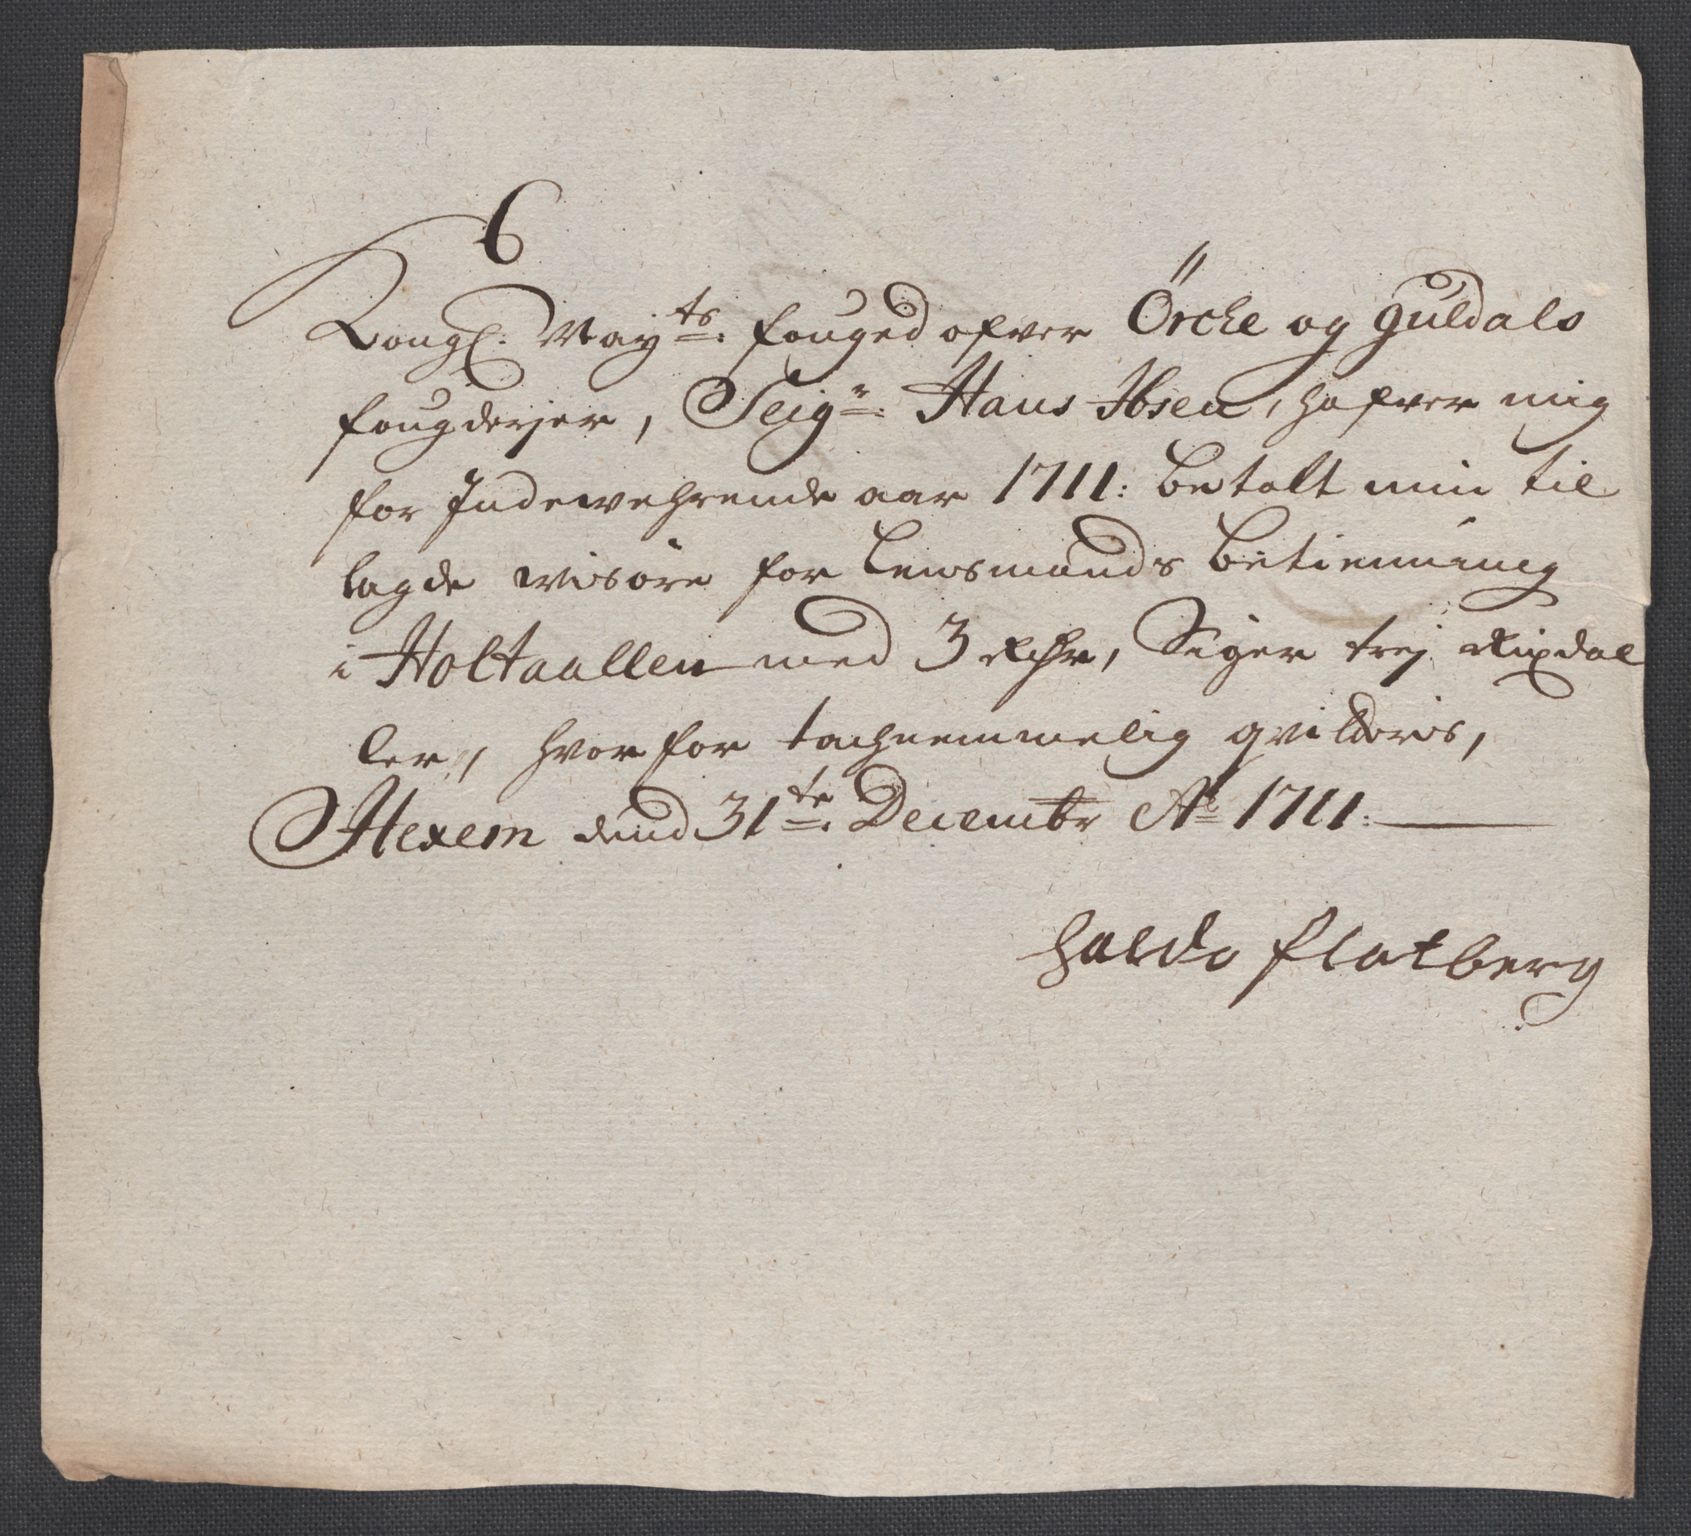 Kongl: Mayts: fouged ofver Örche og Guldals
fougderjer, Seigr: Hans Ibsen, hafver mig
for Indewehrende aar 1711: betalt min til
lagde wisöre for Lensmands betienning
i Holtaallen med 3 Rdr, Siger trej Rixdal
ler, hvorfor tachnemmelig qvitteris,
Hexem dend 31te: Decembr Ao 1711:
Haldo Flatberg